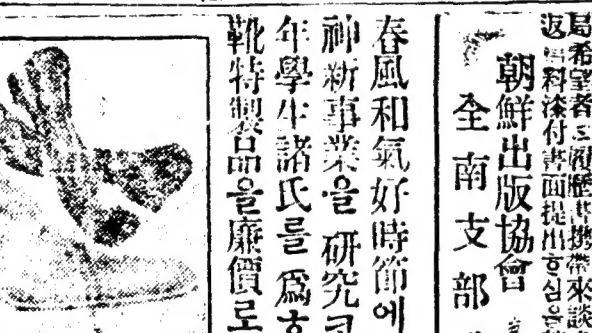 局希望者는履歷書携帶來談
返信料添付書面提出호심을
朝鮮出版協會
全南支部
春風和氣好時節에
神新事業을研究코
年學生諸氏를爲호
靴特製品을廉價로